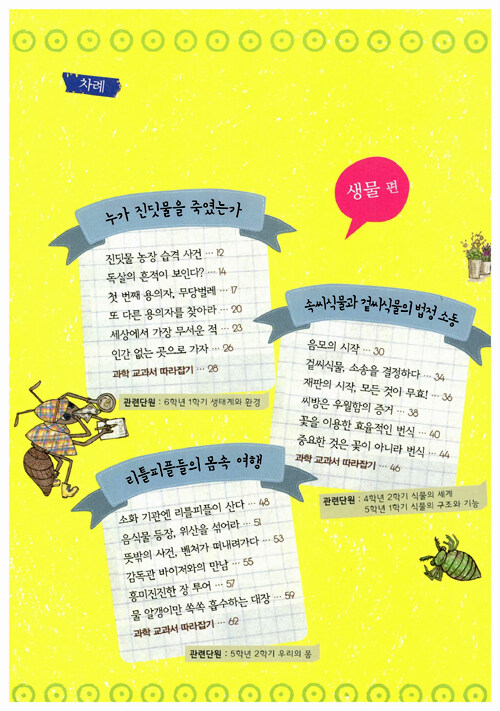 차례
생물 편
누가 진딧물을 죽였는가
진딧물 농장 습격 사건 … 12
독살의 흔적이 보인다? … 14
첫 번째 용의자, 무당벌레 … 17
또 다른 용의자를 찾아라 … 20
세상에서 가장 무서운 적 … 23
인간 없는 곳으로 가자 … 26
과학 교과서 따라잡기 … 28
관련단원 : 6학년 1학기 생태계와 환경
속씨식물과 겉씨식물의 법정 소동
음모의 시작 … 30
겉씨식물, 소송을 결정하다 … 34
재판의 시작, 모든 것이 무효! … 36
씨방은 우월함의 증거 … 38
꽃을 이용한 효율적인 번식 … 40
중요한 것은 꽃이 아니라 번식 … 44
과학 교과서 따라잡기 … 46
관련단원 : 4학년 2학기 식물의 세계
5학년 1학기 식물의 구조와 기능
리틀피플들의 몸속 여행
소화 기관엔 리틀피플이 산다 … 48
음식물 등장, 위산을 섞어라 … 51
뜻밖의 사건, 벤처가 떠내려가다 … 53
감독관 바이저와의 만남 … 55
흥미진진한 장 투어 … 57
물 알갱이만 쏙쏙 흡수하는 대장 … 59
과학 교과서 따라잡기 … 62
관련단원 : 5학년 2학기 우리의 몸